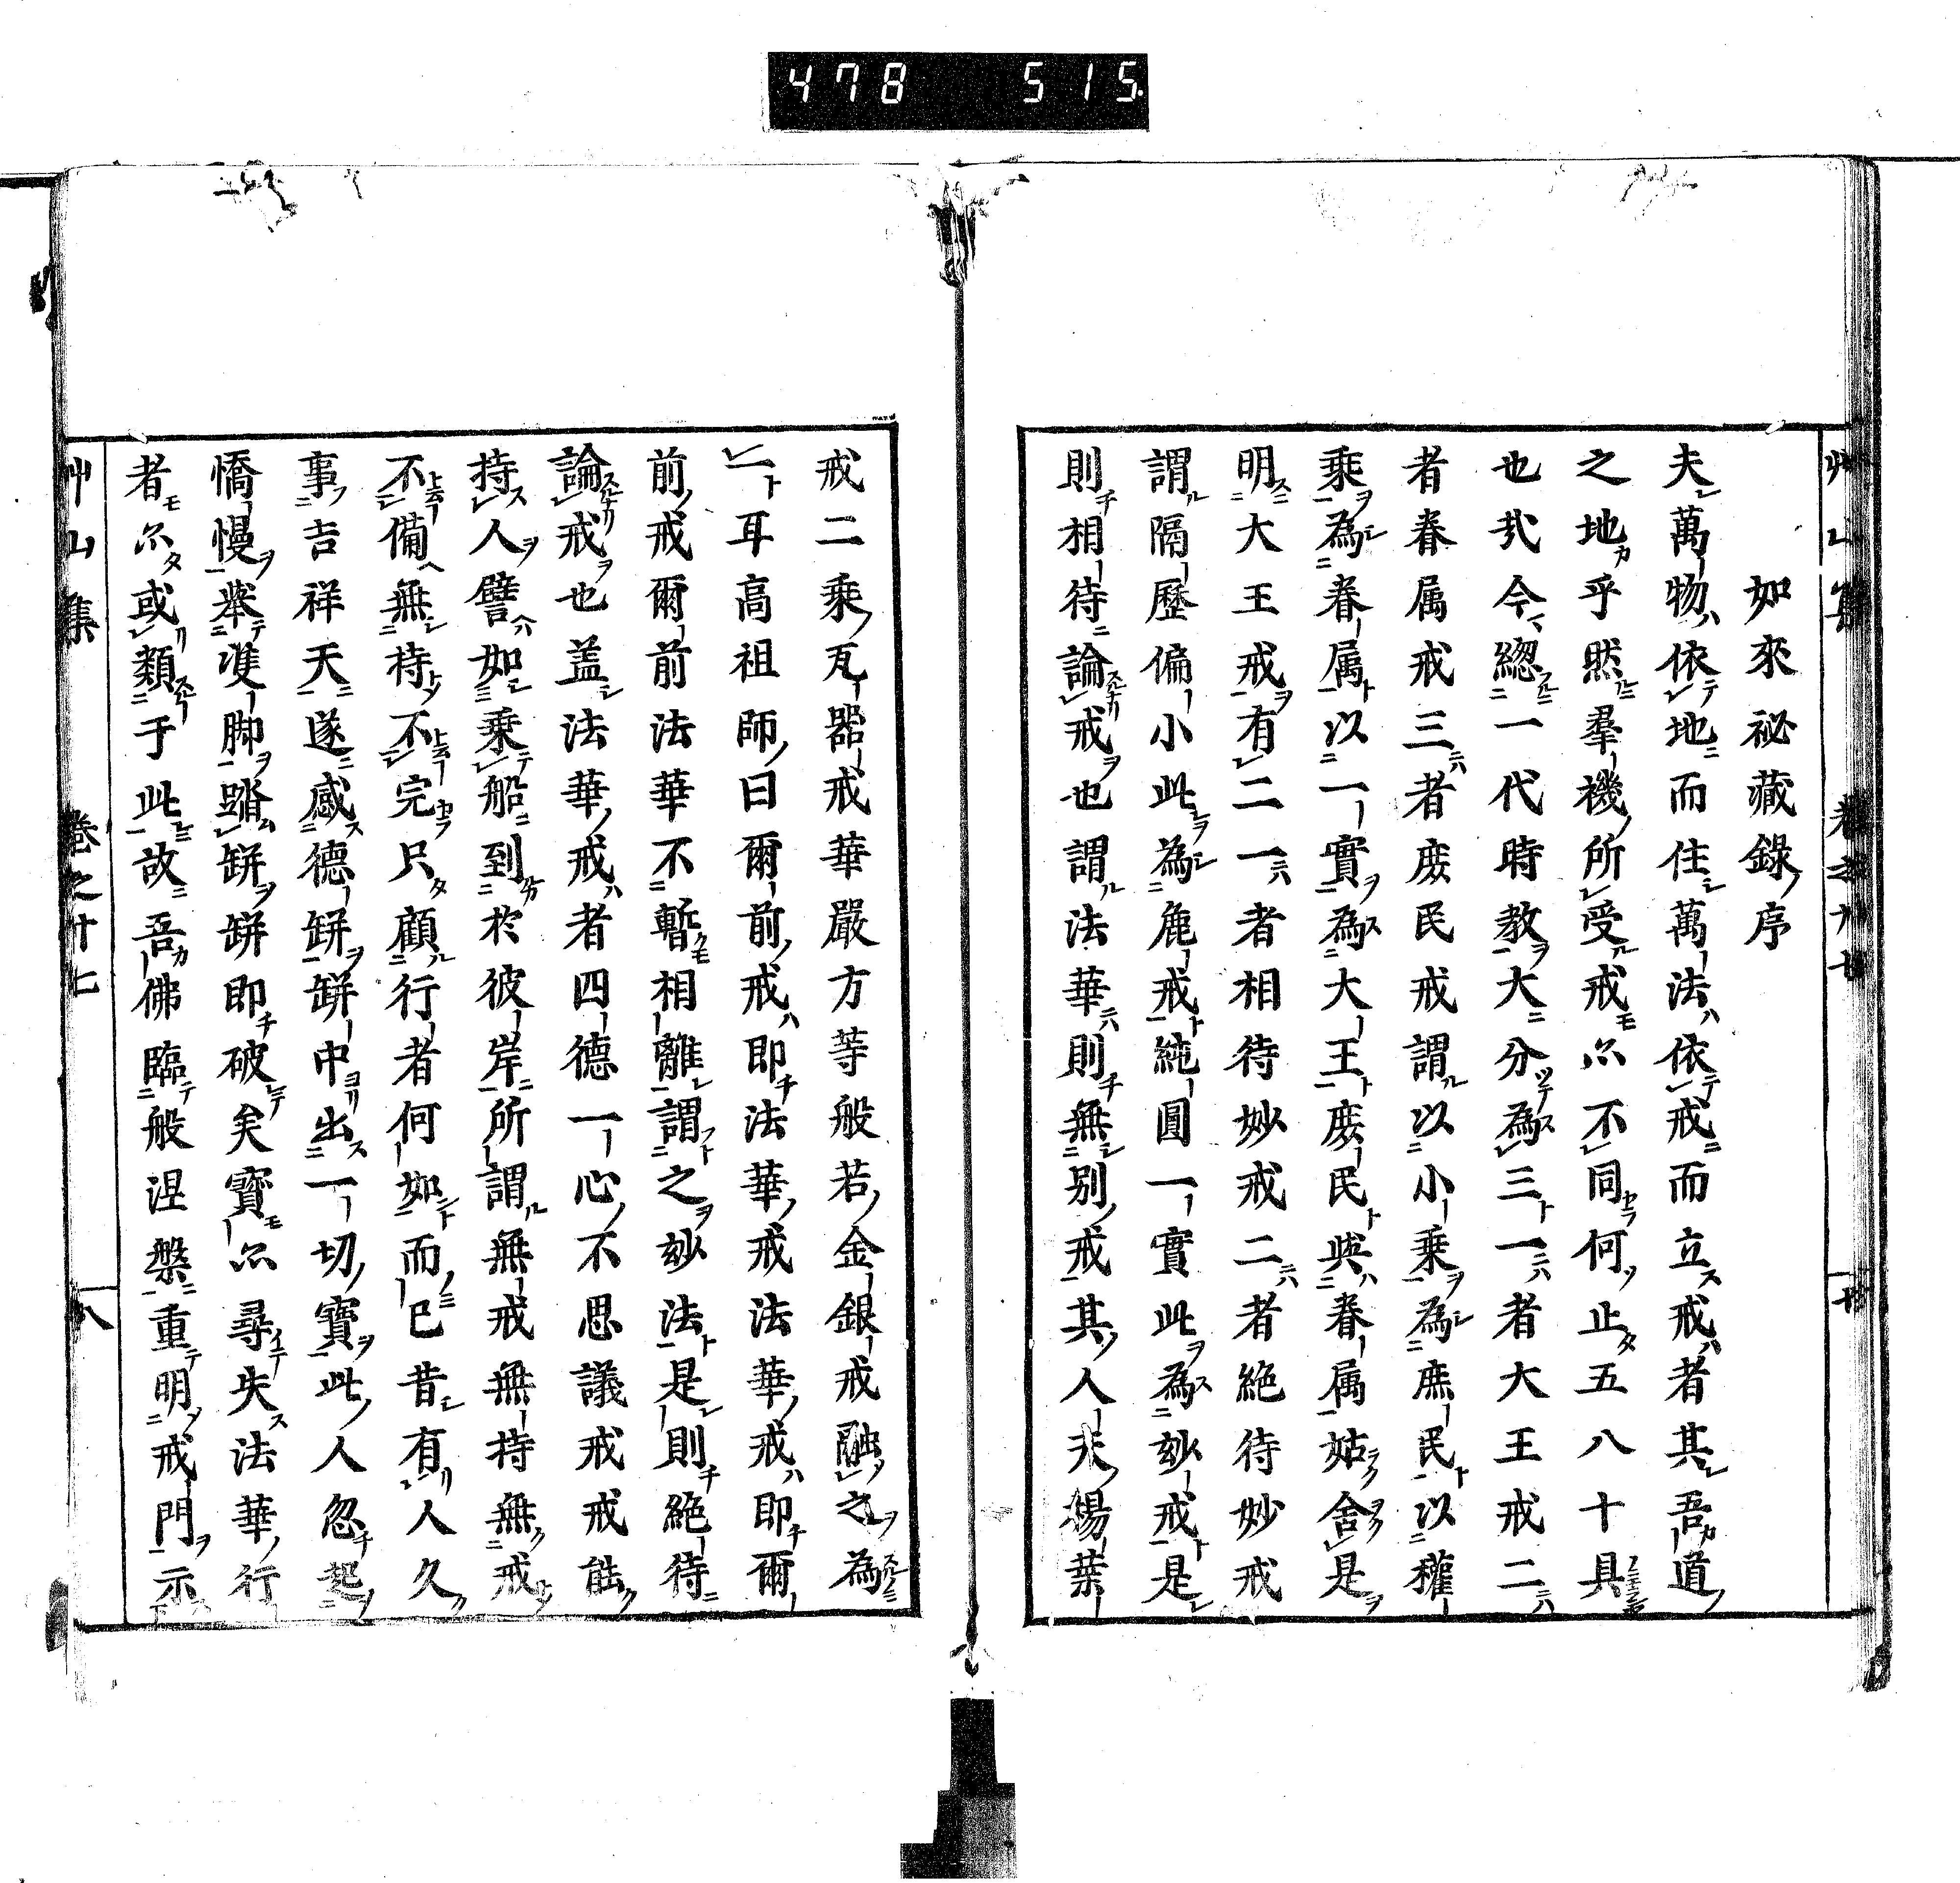 478 515
如來祕藏錄序
夫萬物依地而住萬法依戒而立戒者其吾道
之地乎然羣機所受戒尒不同何止五八十具
也㢤今總一代時教大分為三一者大王戒二
者眷属戒三者庻民戒謂以小乘為庶民以權
乘為眷属以一實為大王庻民與眷属姑舍是
明大王戒有二一者相待妙戒二者絶待妙戒
謂隔歷偏小此為麁戒純圓一實此為玅戒是
則相待論戒也謂法華則無别戒其人夫楊葉
戒二乘瓦器戒華嚴方等般若金銀戒融之為
一耳高祖師曰爾前戒即法華戒法華戒即爾
前戒爾前法華不暫相離謂之玅法是則絶待
論戒也盖法華戒者四德一心不思議戒戒能
持人譬如乗船到於彼岸所謂無戒無持無戒
不備無持不完只顧行者何如而已昔有人久
事吉祥天遂感德缾缾中出一切寶此人忽起
憍慢舉𨾏脚踏缾缾即破矣寶尒尋失法華行
者尒或類于此故吾佛臨般涅槃重明戒門示
艸山集 卷之廿七 八